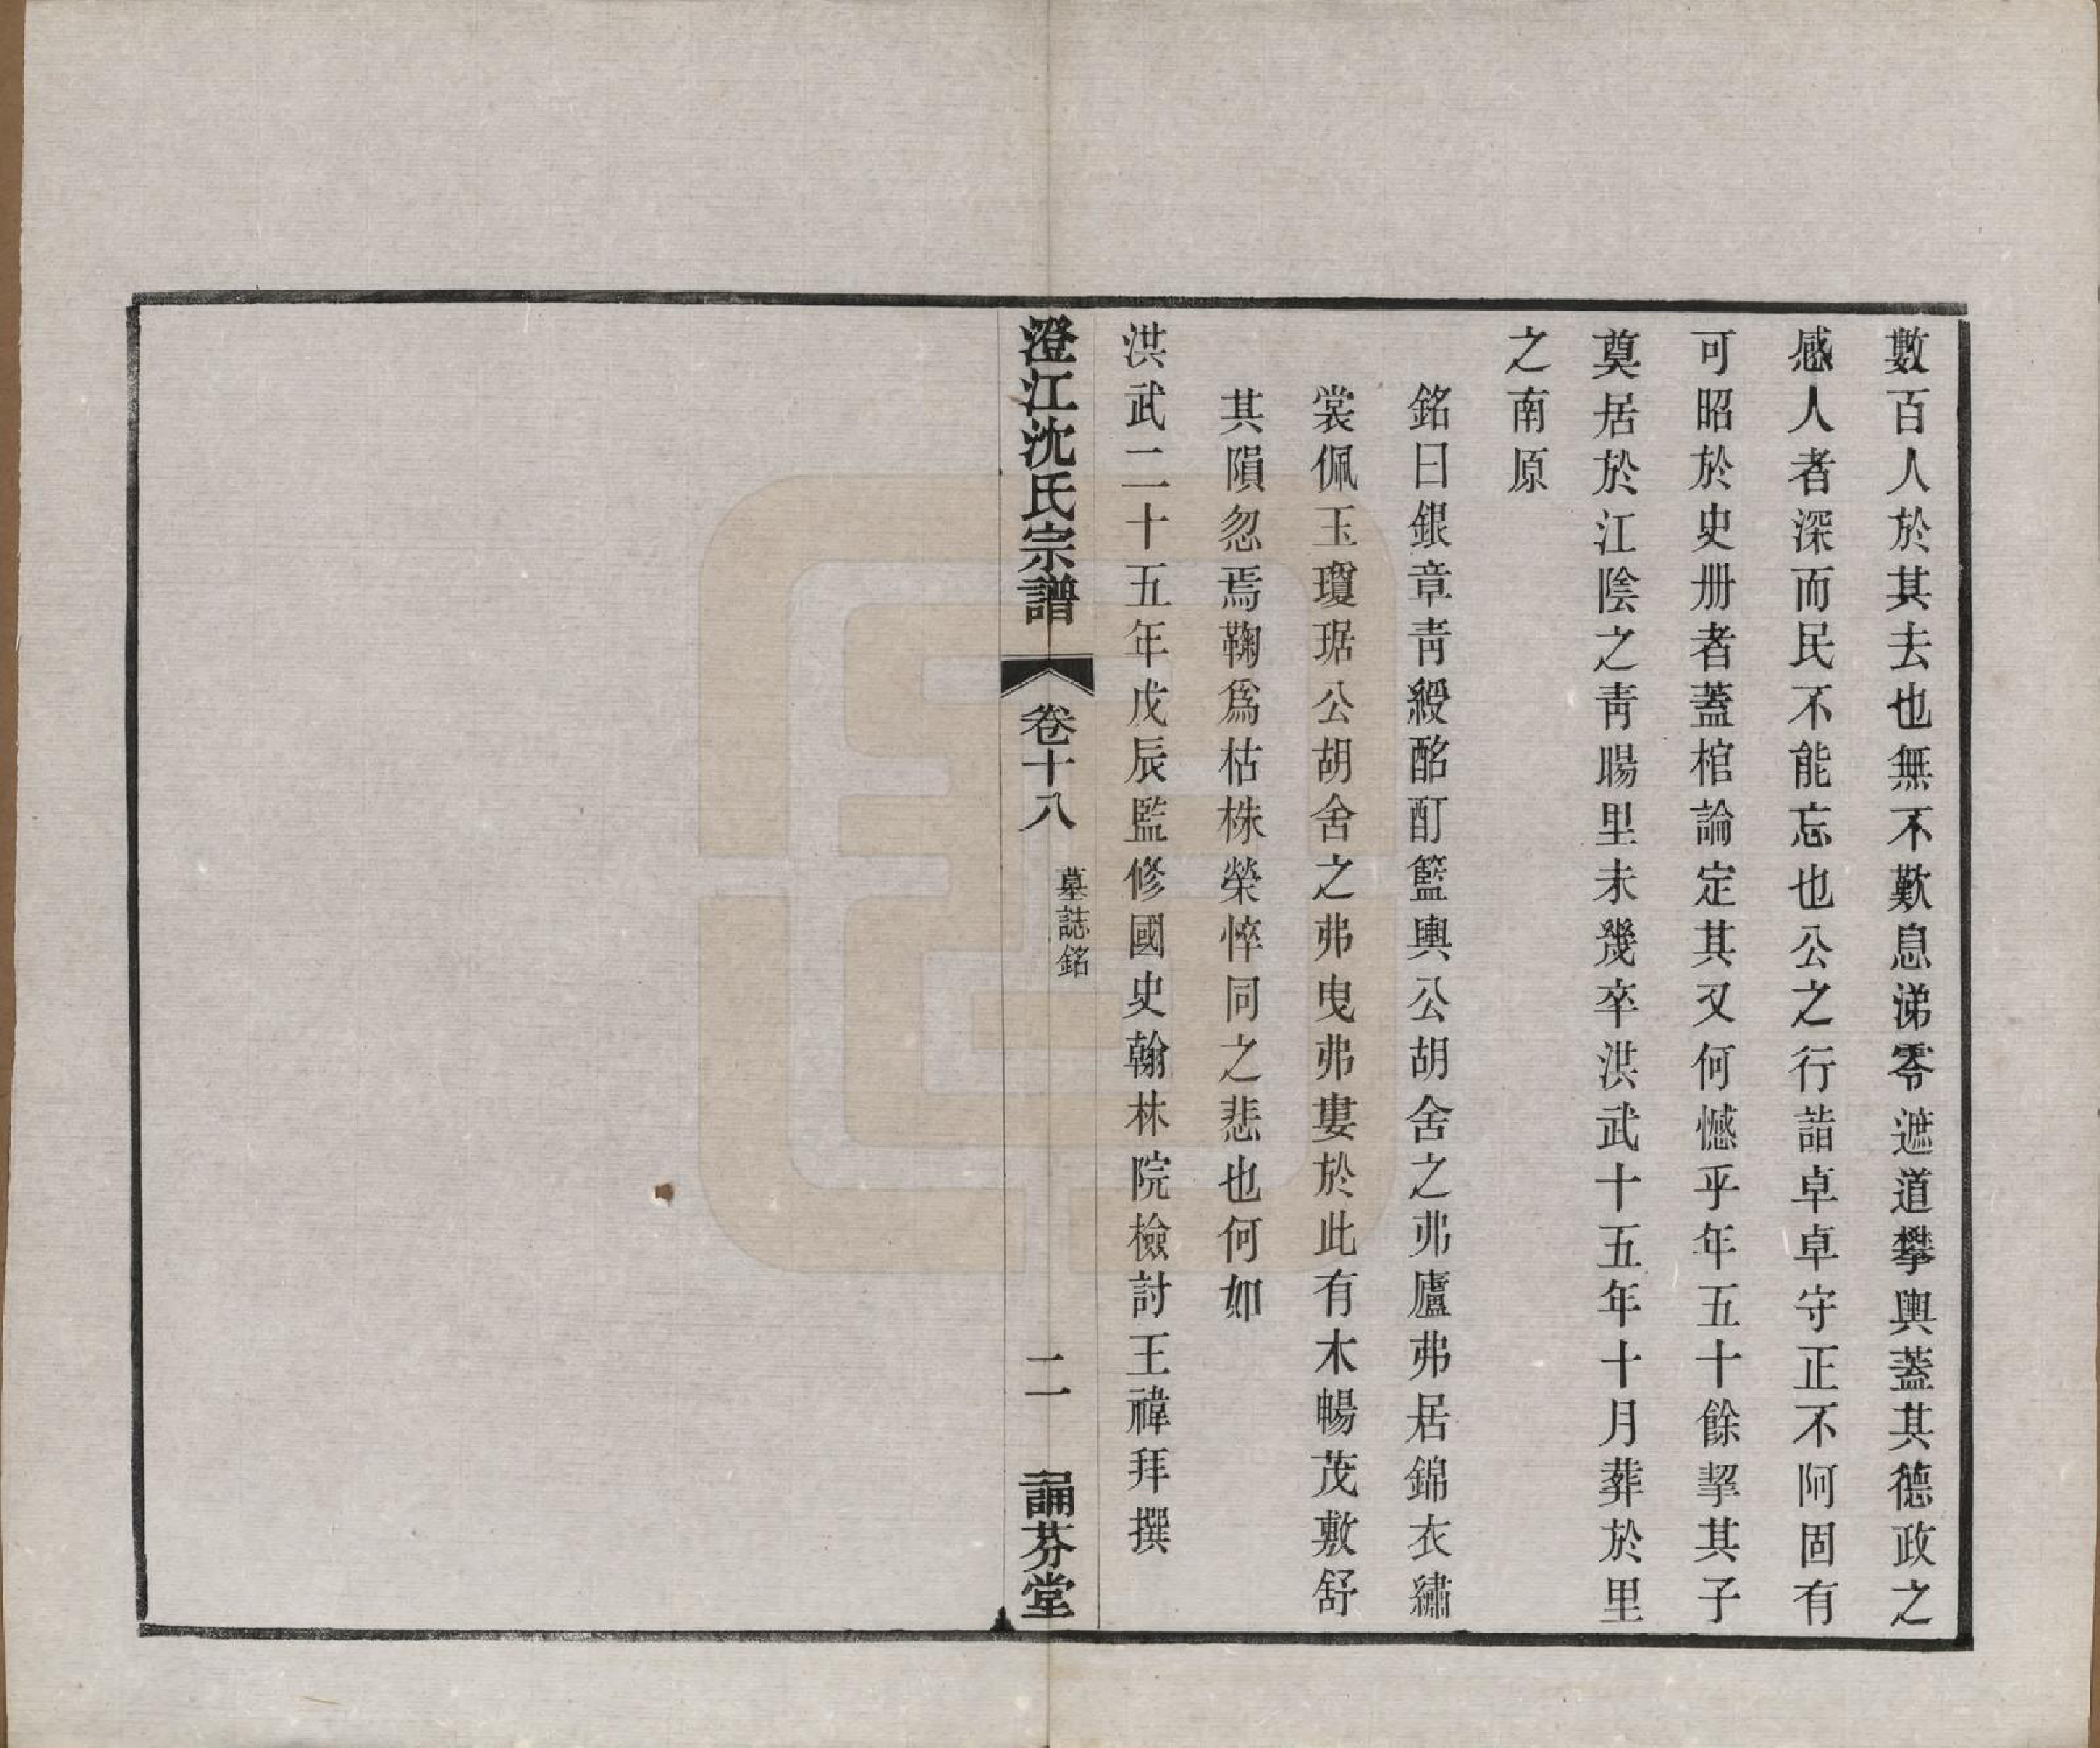 數百人於其去也無不歎息涕零遮道攀輿蓋其德政之
感人者深而民不能忘也公之行詣卓卓守正不阿固有
可昭於史册者蓋棺論定其又何憾乎年五十餘挈其子
奠居於江陰之靑暘里未幾卒洪武十五年十月葬於里
之南原
銘曰銀章靑綬酩酊籃輿公胡舍之弗廬弗居錦衣繡
裳佩玉瓊琚公胡舍之弗曳弗婁於此有木暢茂敷舒
其隕忽焉鞠爲枯株榮悴同之悲也何如
洪武二十五年戊辰監修國史翰林院檢討王禕拜撰
澄江沈氏宗譜
卷十八
墓誌銘
二
誦芬堂